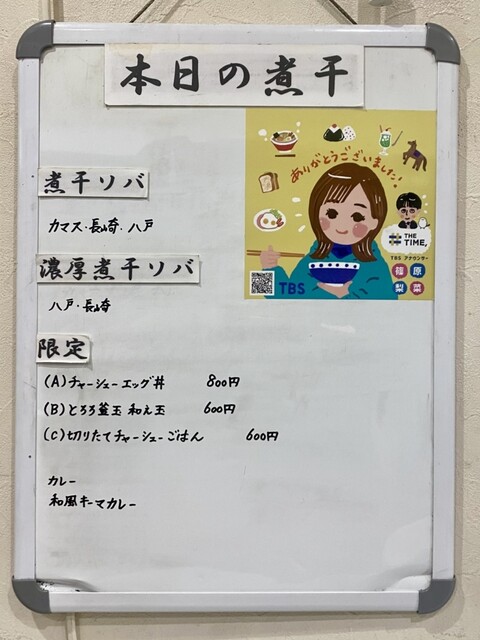 本日の煮干
ありがとうございました!
煮干ソバ
カマス・長崎・八戸
THE
TIME,
濃厚煮干ソバ
TBS アナウンサー
篠原
梨菜
TBS
八戸・長崎
限定
(A)チャーシューエッグ丼 800円
(B)とろろ釜玉 和え玉 600円
(C)切りたてチャーシューごはん 600円
カレー
和風キーマカレー